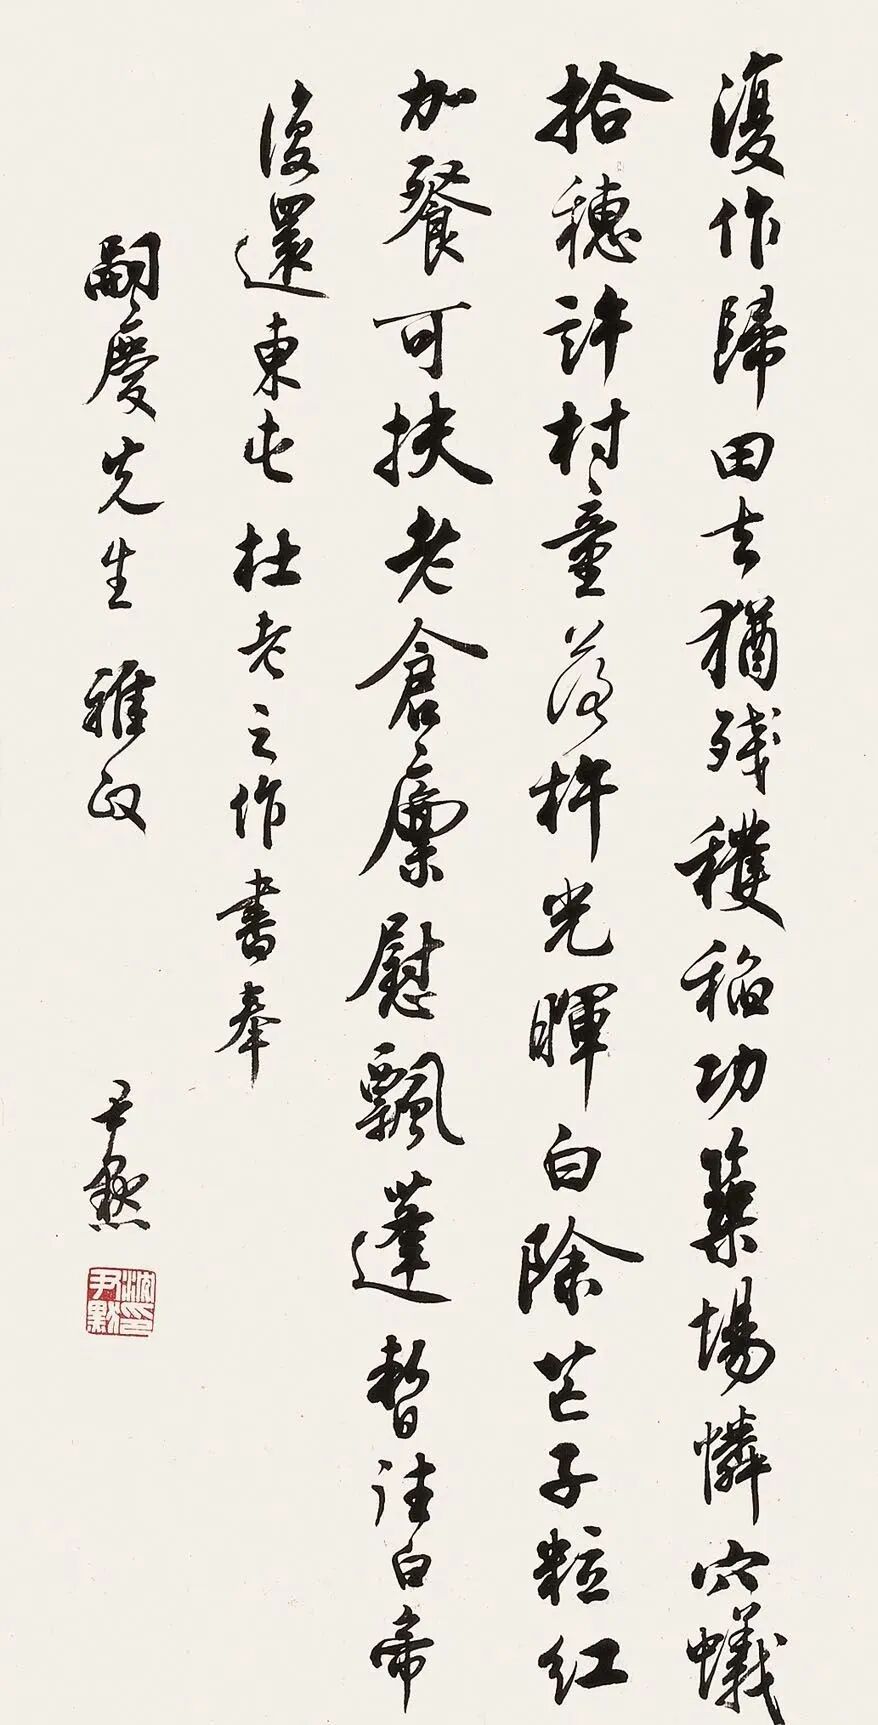 復作歸田去猶殘穫稻功築場憐穴蟻
拾穗許村童落杵光暉白除芒子粒紅
加餐可扶老倉廩慰飄蓬暫往白帝
復還東屯杜老之作書奉
嗣慶先生雅政
尹默
沈尹默印